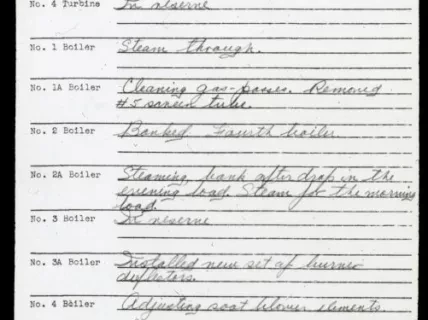 No. 4 Turbine In reserve
No. 1 Boiler Steam through.
No. 1A Boiler Cleaning gas-passes. Removed
#5 screen tube.
No. 2 Boiler Banked Fourth boiler.
No. 2A Boiler Steaming, bank after drop in the
evening load. Steam for the morning
load
No. 3 Boiler In reserve
No. 3A Boiler Installed new set of burner
deflectors.
No. 4 Boiler Adjusting soot blower elements.